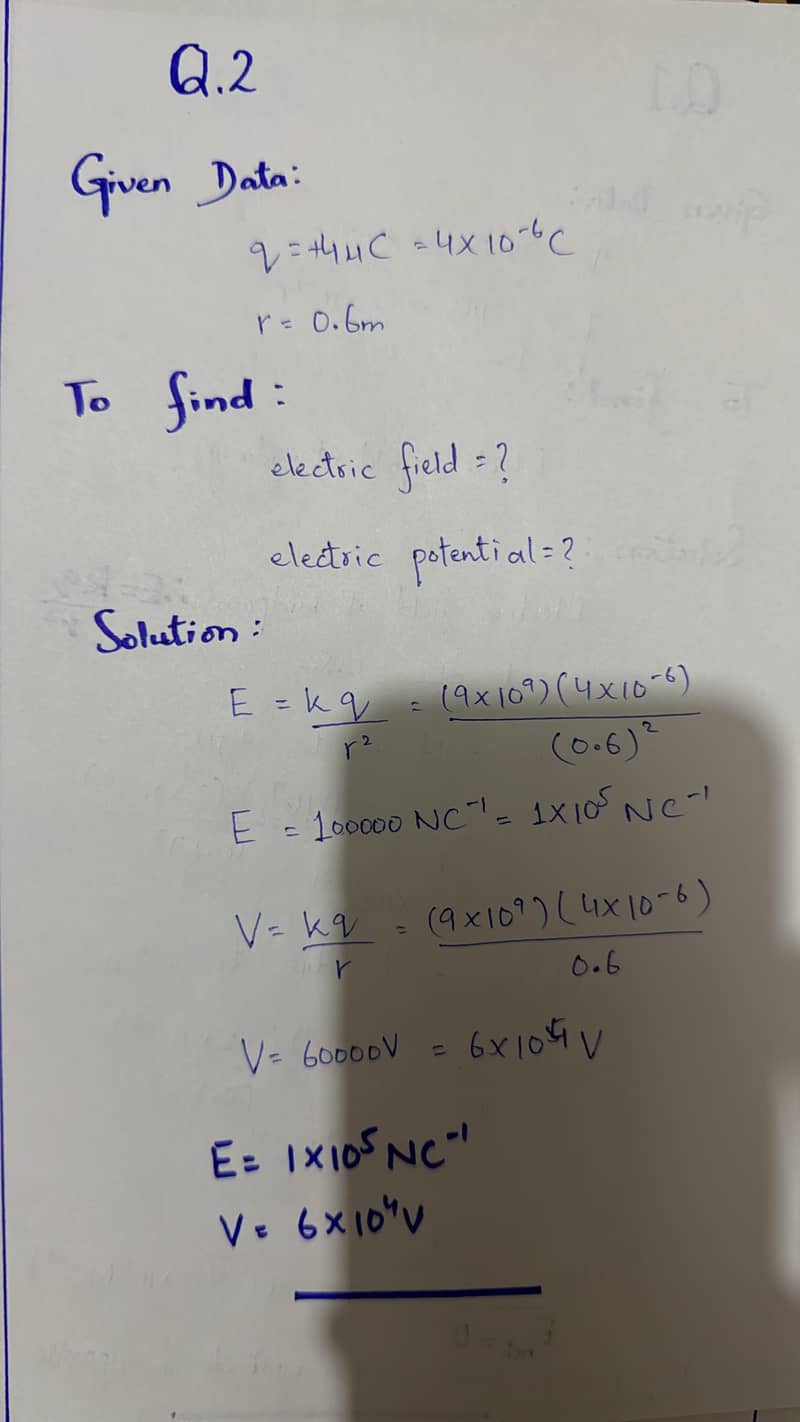 Q.2
Given Data:
q = +4μC = 4×10⁻⁶C
r = 0.6m
To find:
electric field = ?
electric potential = ?
Solution:
E = kq/r² = (9×10⁹)(4×10⁻⁶)/(0.6)²
E = 100000 NC⁻¹ = 1×10⁵ NC⁻¹
V = kq/r = (9×10⁹)(4×10⁻⁶)/0.6
V = 60000V = 6×10⁴ V
E = 1×10⁵ NC⁻¹
V = 6×10⁴V